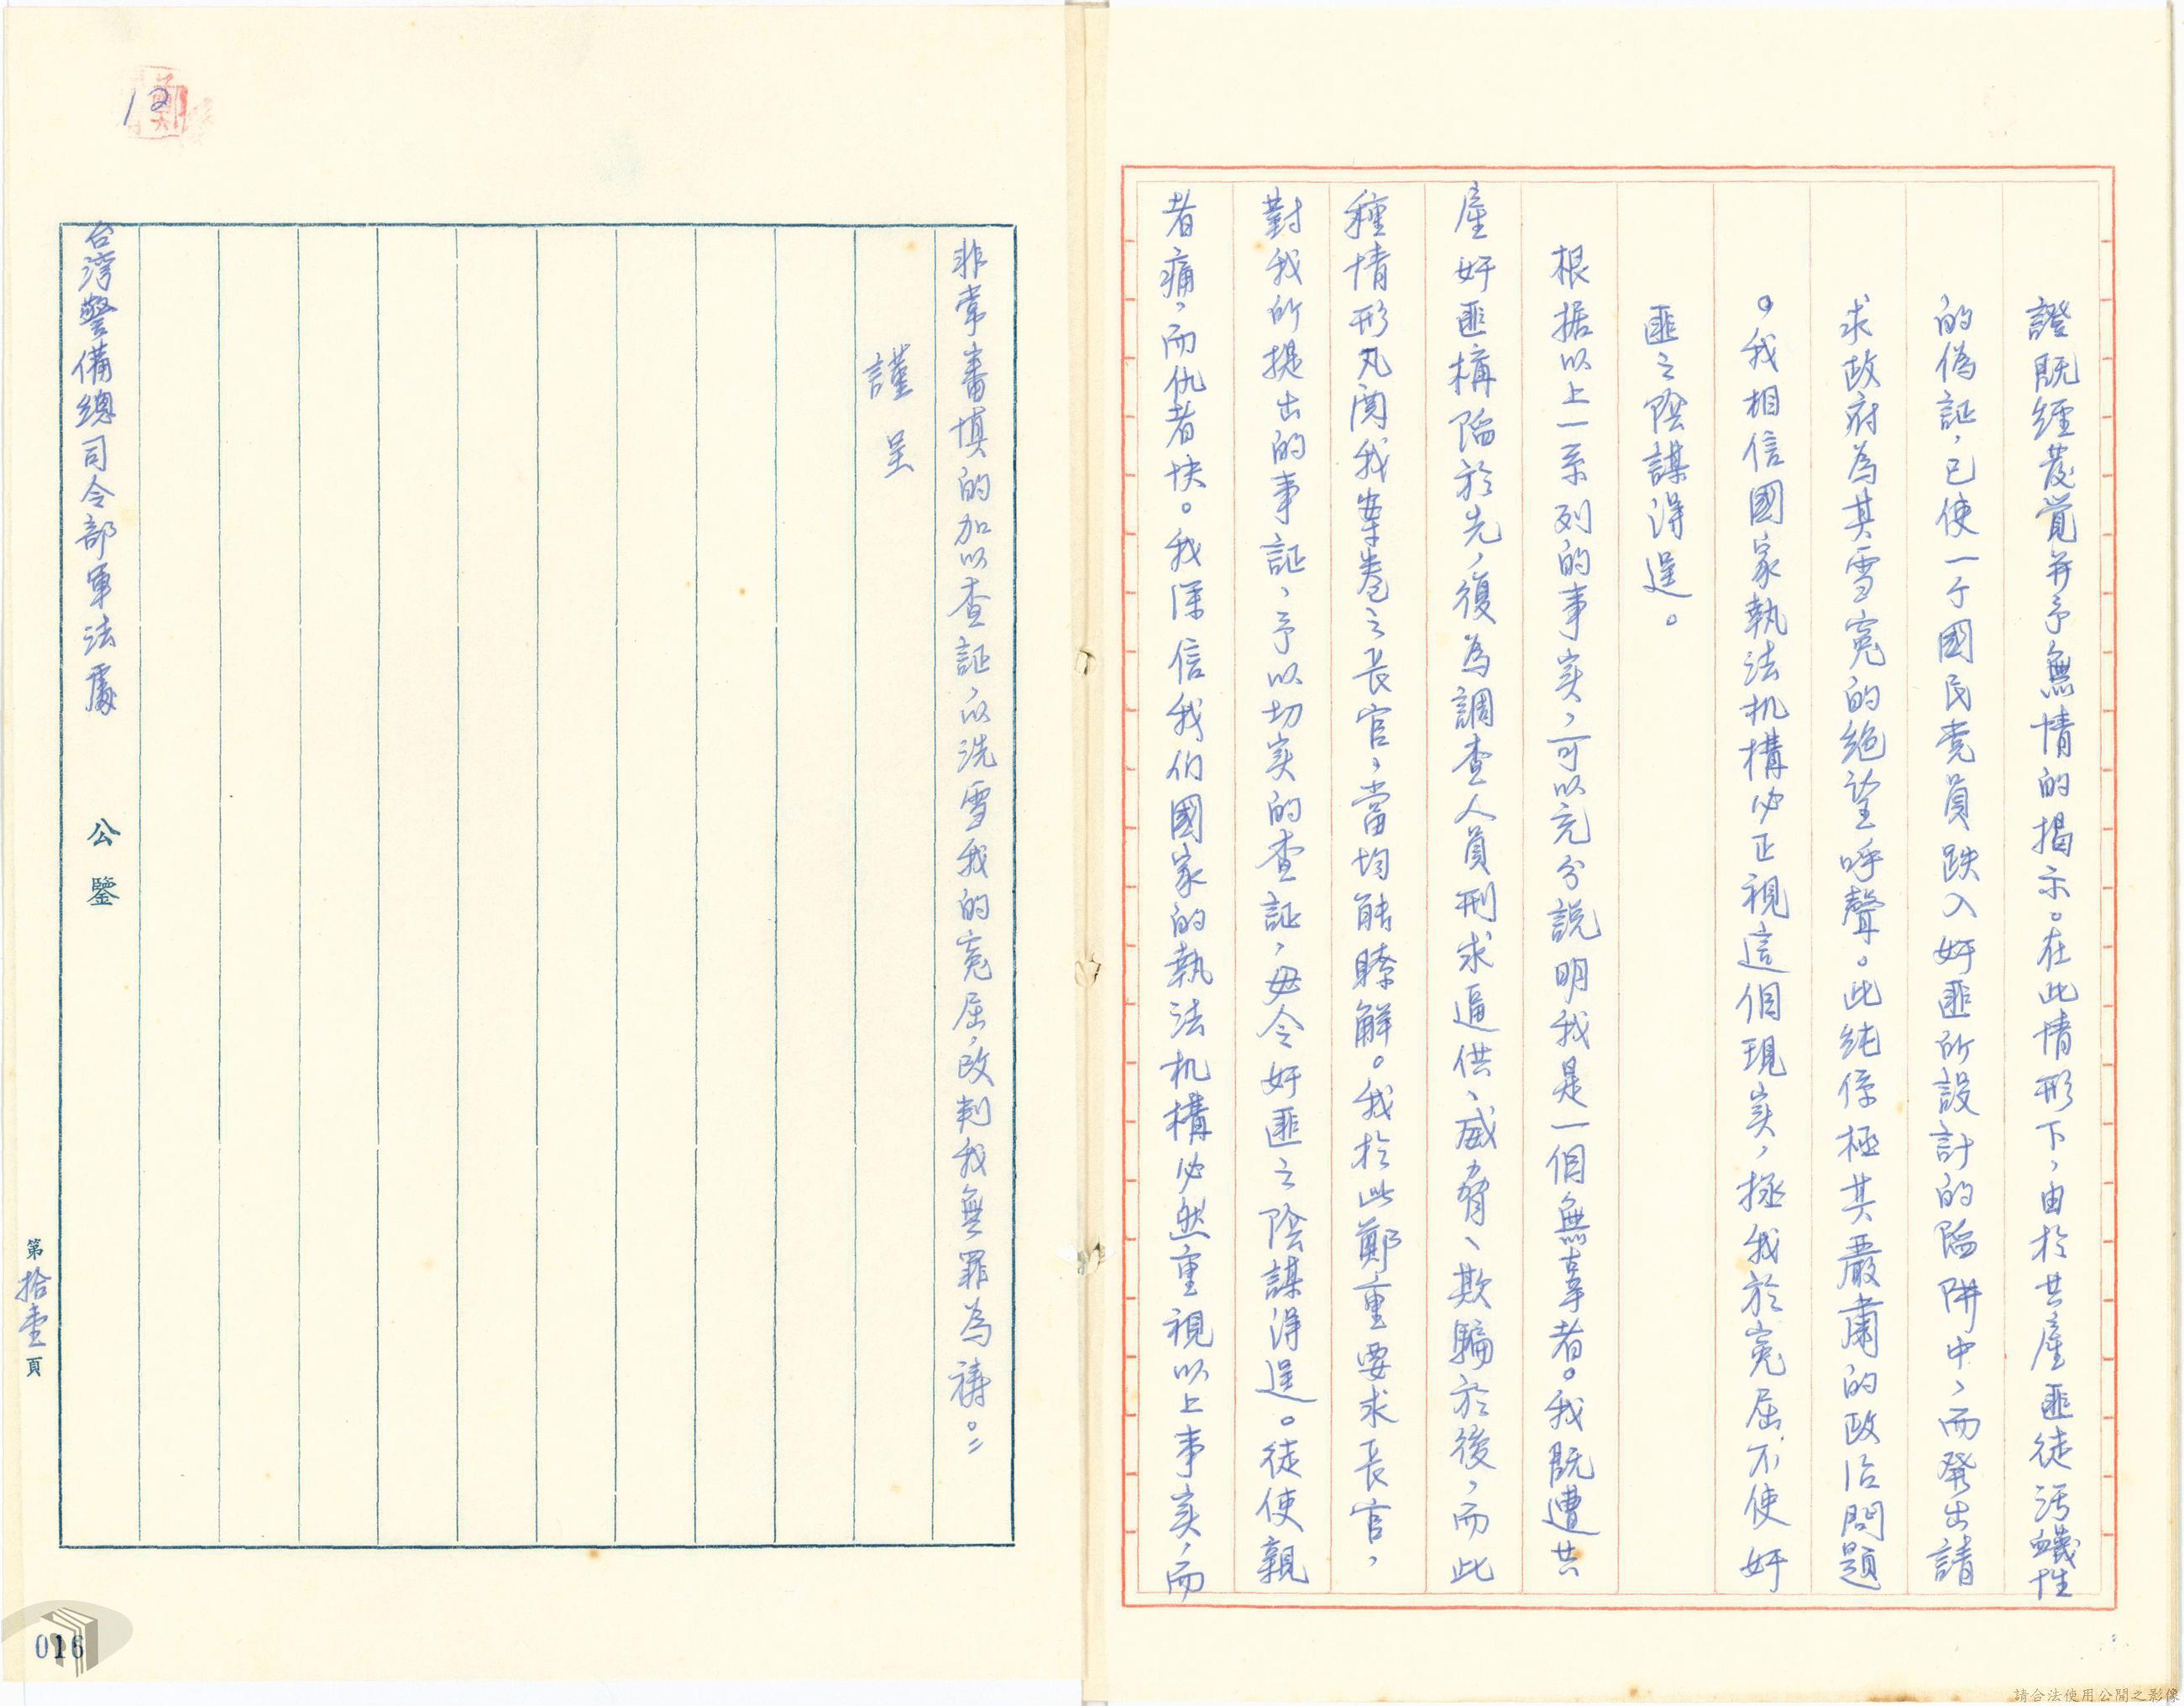 證既經蔑覚并予無情的揭示。在此情形下，由於共產匪徒污衊性
的偽証，已使一个國民党員跌入奸匪所設計的陷阱中，而發出請
求政府為其雪寃的絕望呼聲。此純係極其嚴肅的政治問題
。我相信國家執法机構必正視這個現実，拯我於寃屈不使奸
匪之陰謀得逞。
根据以上一系列的事実，可以充分說明我是一個無辜者。我既遭共
產奸匪構陷於先，復為調查人員刑求逼供、威脅、欺騙於後，而此
種情形凡閱我案卷之長官，當均能瞭解。我於此鄭重要求長官，
對我所提出的事証，予以切実的查証，毋令奸匪之陰謀得逞。徒使親
者痛，而仇者快。我深信我们國家的執法机構必然重視以上事実，而
非常審慎的加以查証，以洗雪我的寃屈，改判我無罪為禱。
謹呈
台灣警備總司令部軍法處 公鑒
第拾壹頁
12
鄭
016
請合法使用公開之影像